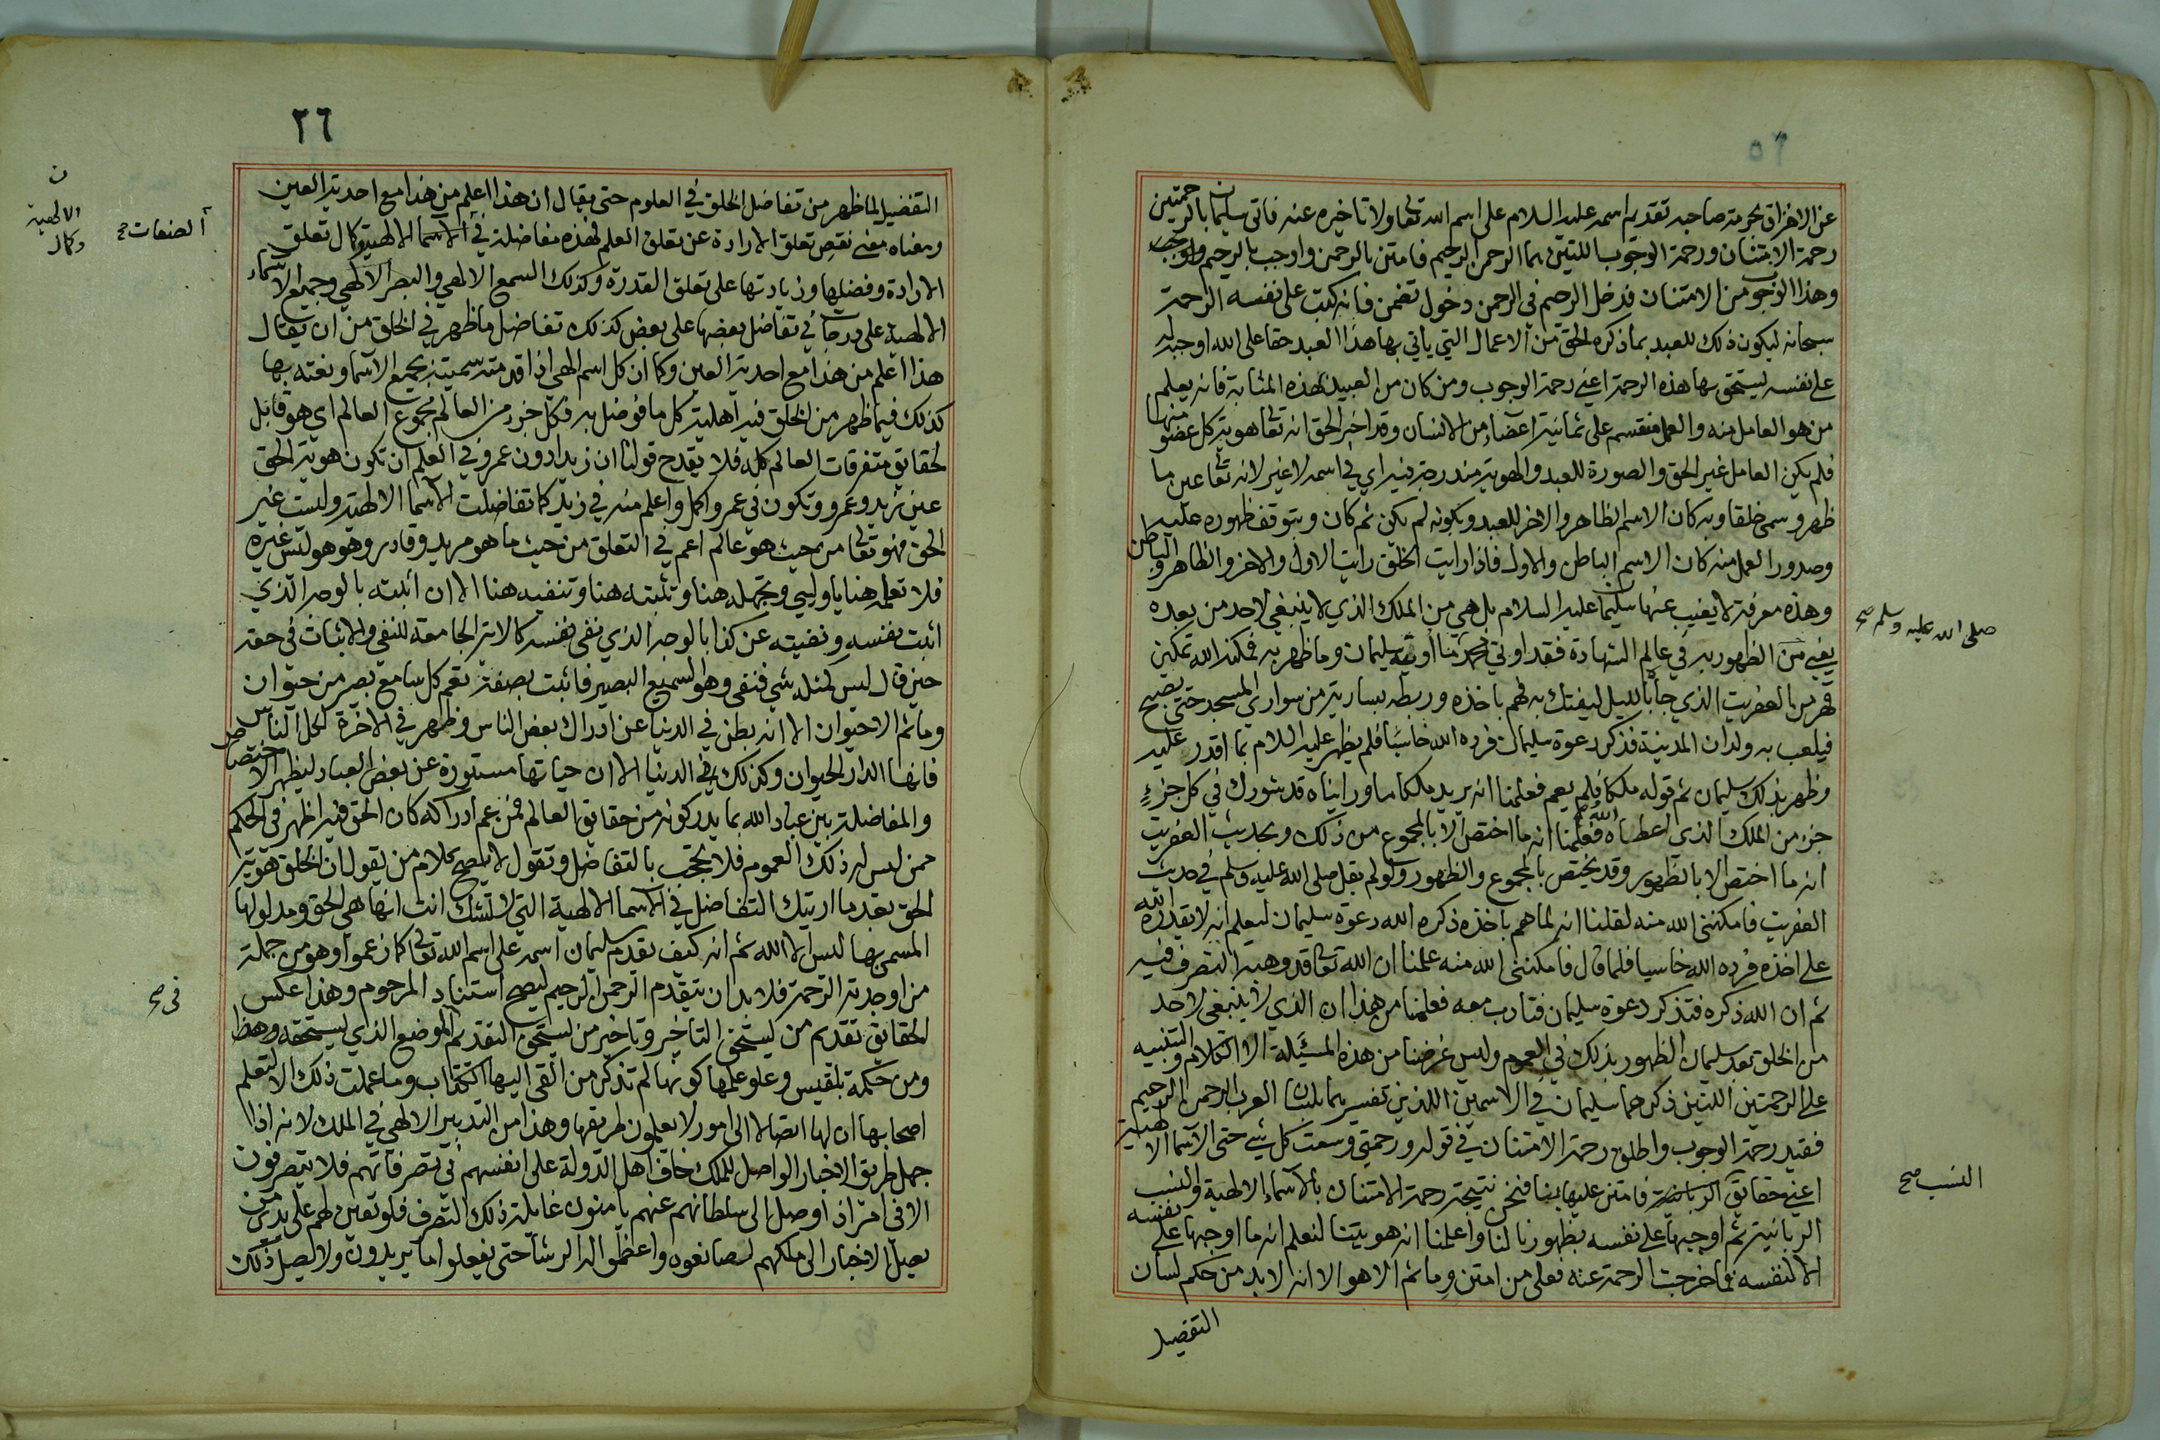 عن الاخراق بحرمة صاحبه تقديم اسمه عليه السلام على اسم الله تعالى ولا تأخيره عنه فاتى سليمان بالرحمتين
رحمة الامتنان ورحمة الوجوب اللتين هما الرحمن الرحيم فامتن بالرحمن واوجب بالرحيم والوجوب
وهذا الوجوب من الامتنان فدخل الرحيم في الرحمن دخول تضمن فانه كتب على نفسه الرحمة
سبحانه ليكون ذلك للعبد بما ذكره الحق من الاعمال التي يأتي بها هذا العبد حقا على الله اوجبه له
على نفسه ليستحق بها هذه الرحمة اعني رحمة الوجوب ومن كان من العبيد بهذه المثابة فانه يعلم
من هو العامل منه والعمل منقسم على ثمانية اعضاء من الانسان وقد اخبر الحق انه تعالى هوية كل عضو منها
فلم يكن العامل غير الحق والصورة للعبد والهوية مندرجة فيه اي في اسمه لا غير لانه تعالى عين ما
ظهر وسمي خلقا وبه كان الاسم الظاهر والاخر للعبد وبكونه لم يكن ثم كان وبتوقف ظهوره عليه
وصدور العمل منه كان الاسم الباطن والاول فاذا رايت الخلق رايت الاول والاخر والظاهر والباطن
وهذه معرفة لا يغيب عنها سليمان عليه السلام بل هي من الملك الذي لا ينبغي لاحد من بعده
يعني من الظهور به في عالم الشهادة فقد اوتي محمد ما اوتيه سليمان وما ظهر به فمكنه الله تمكين
صلى الله عليه وسلم صح
قهر من العفريت الذي جاء بالليل ليفتك به فهم باخذه وربطه بسارية من سواري المسجد حتى يصبح
فيلعب به ولدان المدينة فذكر دعوة سليمان فرده الله خاسئا فلم يظهر عليه السلام بما اقدر عليه
وظهر بذلك سليمان ثم قوله ملكا فلم يعم فعلمنا انه يريد ملكا ما وراينا قد شورك في كل جزء
جزء من الملك الذي اعطاه الله فعلمنا انه ما اختص الا بالمجموع من ذلك وبحديث العفريت
انه ما اختص الا بالظهور وقد يختص بالمجموع والظهور ولو لم يقل صلى الله عليه وسلم في حديث
العفريت فامكنني الله منه لقلنا انه لما هم باخذه ذكره الله دعوة سليمان ليعلم انه لا يقدره الله
على اخذه فرده الله خاسيا فلما قال فامكنني الله منه علمنا ان الله تعالى قد وهبه التصرف فيه
ثم ان الله ذكره فتذكر دعوة سليمان فتادب معه فعلمنا من هذا ان الذي لا ينبغي لاحد
من الخلق بعد سليمان الظهور بذلك في العموم وليس غرضنا من هذه المسئلة الا الكلام والتنبيه
على الرحمتين اللتين ذكرهما سليمان في الاسمين اللذين تفسيرهما بلسان العرب الرحمن الرحيم
فقيد رحمة الوجوب واطلق رحمة الامتنان في قوله ورحمتي وسعت كل شي حتى الاسماء الالهية
اعني حقايق فامتن عليها بنا فنحن نتيجة رحمة الامتنان بالاسماء الالهية والنسب
النسب صح
الربانية ثم اوجبها على نفسه بظهورنا لنا واعلمنا انه هويتنا لنعلم انه ما اوجبها على نفسه
الا لنفسه فما خرجت الرحمة عنه فعلى من امتن وما ثم الا هو الا انه لا بد من حكم لسان
التفضيل
٢٦
التفضيل لما ظهر من تفاضل الخلق في العلوم حتى يقال ان هذا اعلم من هذا مع احدية العين
ومعناه معنى نقص تعلق الارادة عن تعلق العلم فهذه مفاضلة في الاسماء الالهية وكمال تعلق
الصفات صح
ن
الالهية
وكمال
الارادة وفضلها وزيادتها على تعلق القدرة وكذلك السمع الالهي والبصر الالهي وجميع الاسماء
الالهية على درجات في تفاضل بعضها على بعض كذلك تفاضل ما ظهر في الخلق من ان يقال
هذا اعلم من هذا مع احدية العين وكما ان كل اسم الهي اذا قدمته سميته بجميع الاسماء ونعته بها
كذلك فيما ظهر من الخلق فيه اهلية كل ما فوضل به فكل جزء من العالم مجموع العالم اي هو قابل
لحقايق متفرقات العالم كله فلا يقدح قولنا ان زيدا دون عمرو في العلم ان تكون هوية الحق
عين زيد وعمرو وتكون في عمرو اكمل واعلم منه في زيد كما تفاضلت الاسماء الالهية وليست غير
الحق فهو تعالى من حيث هو عالم اعم في التعلق من حيث ما هو مريد وقادر وهو هو ليس غيره
فلا تعلمه هنا يا وليي وتجهله هنا وتثبته هنا وتنفيه هنا الا ان اثبته بالوجه الذي
اثبت نفسه ونفيته عن كذا بالوجه الذي نفى نفسه كالاية الجامعة للنفي والاثبات في حقه
حين قال ليس كمثله شي فنفى وهو السميع البصير فاثبت بصفة تعم كل سامع بصير من حيوان
وما ثم الا حيوان الا انه بطن في الدنيا عن ادراك بعض الناس وظهر في الاخرة لكل الناس
فانها الدار الحيوان وكذلك في الدنيا الا ان حياتها مستورة عن بعض العباد ليظهر الاختصاص
والمفاضلة بين عباد الله بما يدركونه من حقايق العالم فمن عم ادراكه كان الحق فيه اظهر في الحكم
ممن ليس له ذلك العموم فلا تحجب بالتفاضل وتقول لا يصح كلام من يقول ان الخلق هوية
الحق بعد ما اريتك التفاضل في الاسماء الالهية التي لا تشك انت انها هي الحق ومدلولها
المسمى بها ليس الا الله ثم انه كيف يقدم سليمان اسمه على اسم الله تعالى كما زعموا وهو من جملة
من اوجدته الرحمة فلا بد ان يتقدم الرحمن الرحيم ليصح استناد المرحوم وهذا عكس
الحقايق تقديم من يستحق التاخير وتاخير من يستحق التقديم الموضع الذي يستحقه
في صح
ومن حكمة بلقيس وعلو علمها كونها لم تذكر من القى اليها الكتاب وما عملت ذلك الا لتعلم
اصحابها ان لها اتصالا الى امور لا يعلمون طريقها وهذا من التدبير الالهي في الملك لانه اذا
جهل طريق الاخبار الواصل للملك خاف اهل الدولة على انفسهم في تصرفاتهم فلا يتصرفون
الا في امر اذا وصل الى سلطانهم عنهم يامنون غايلة ذلك التصرف فلو تعين لهم على يدي من
يصل الاخبار الى ملكهم لصانعوه واعظموا له الرشا حتى يفعلوا ما يريدون ولا يصل ذلك